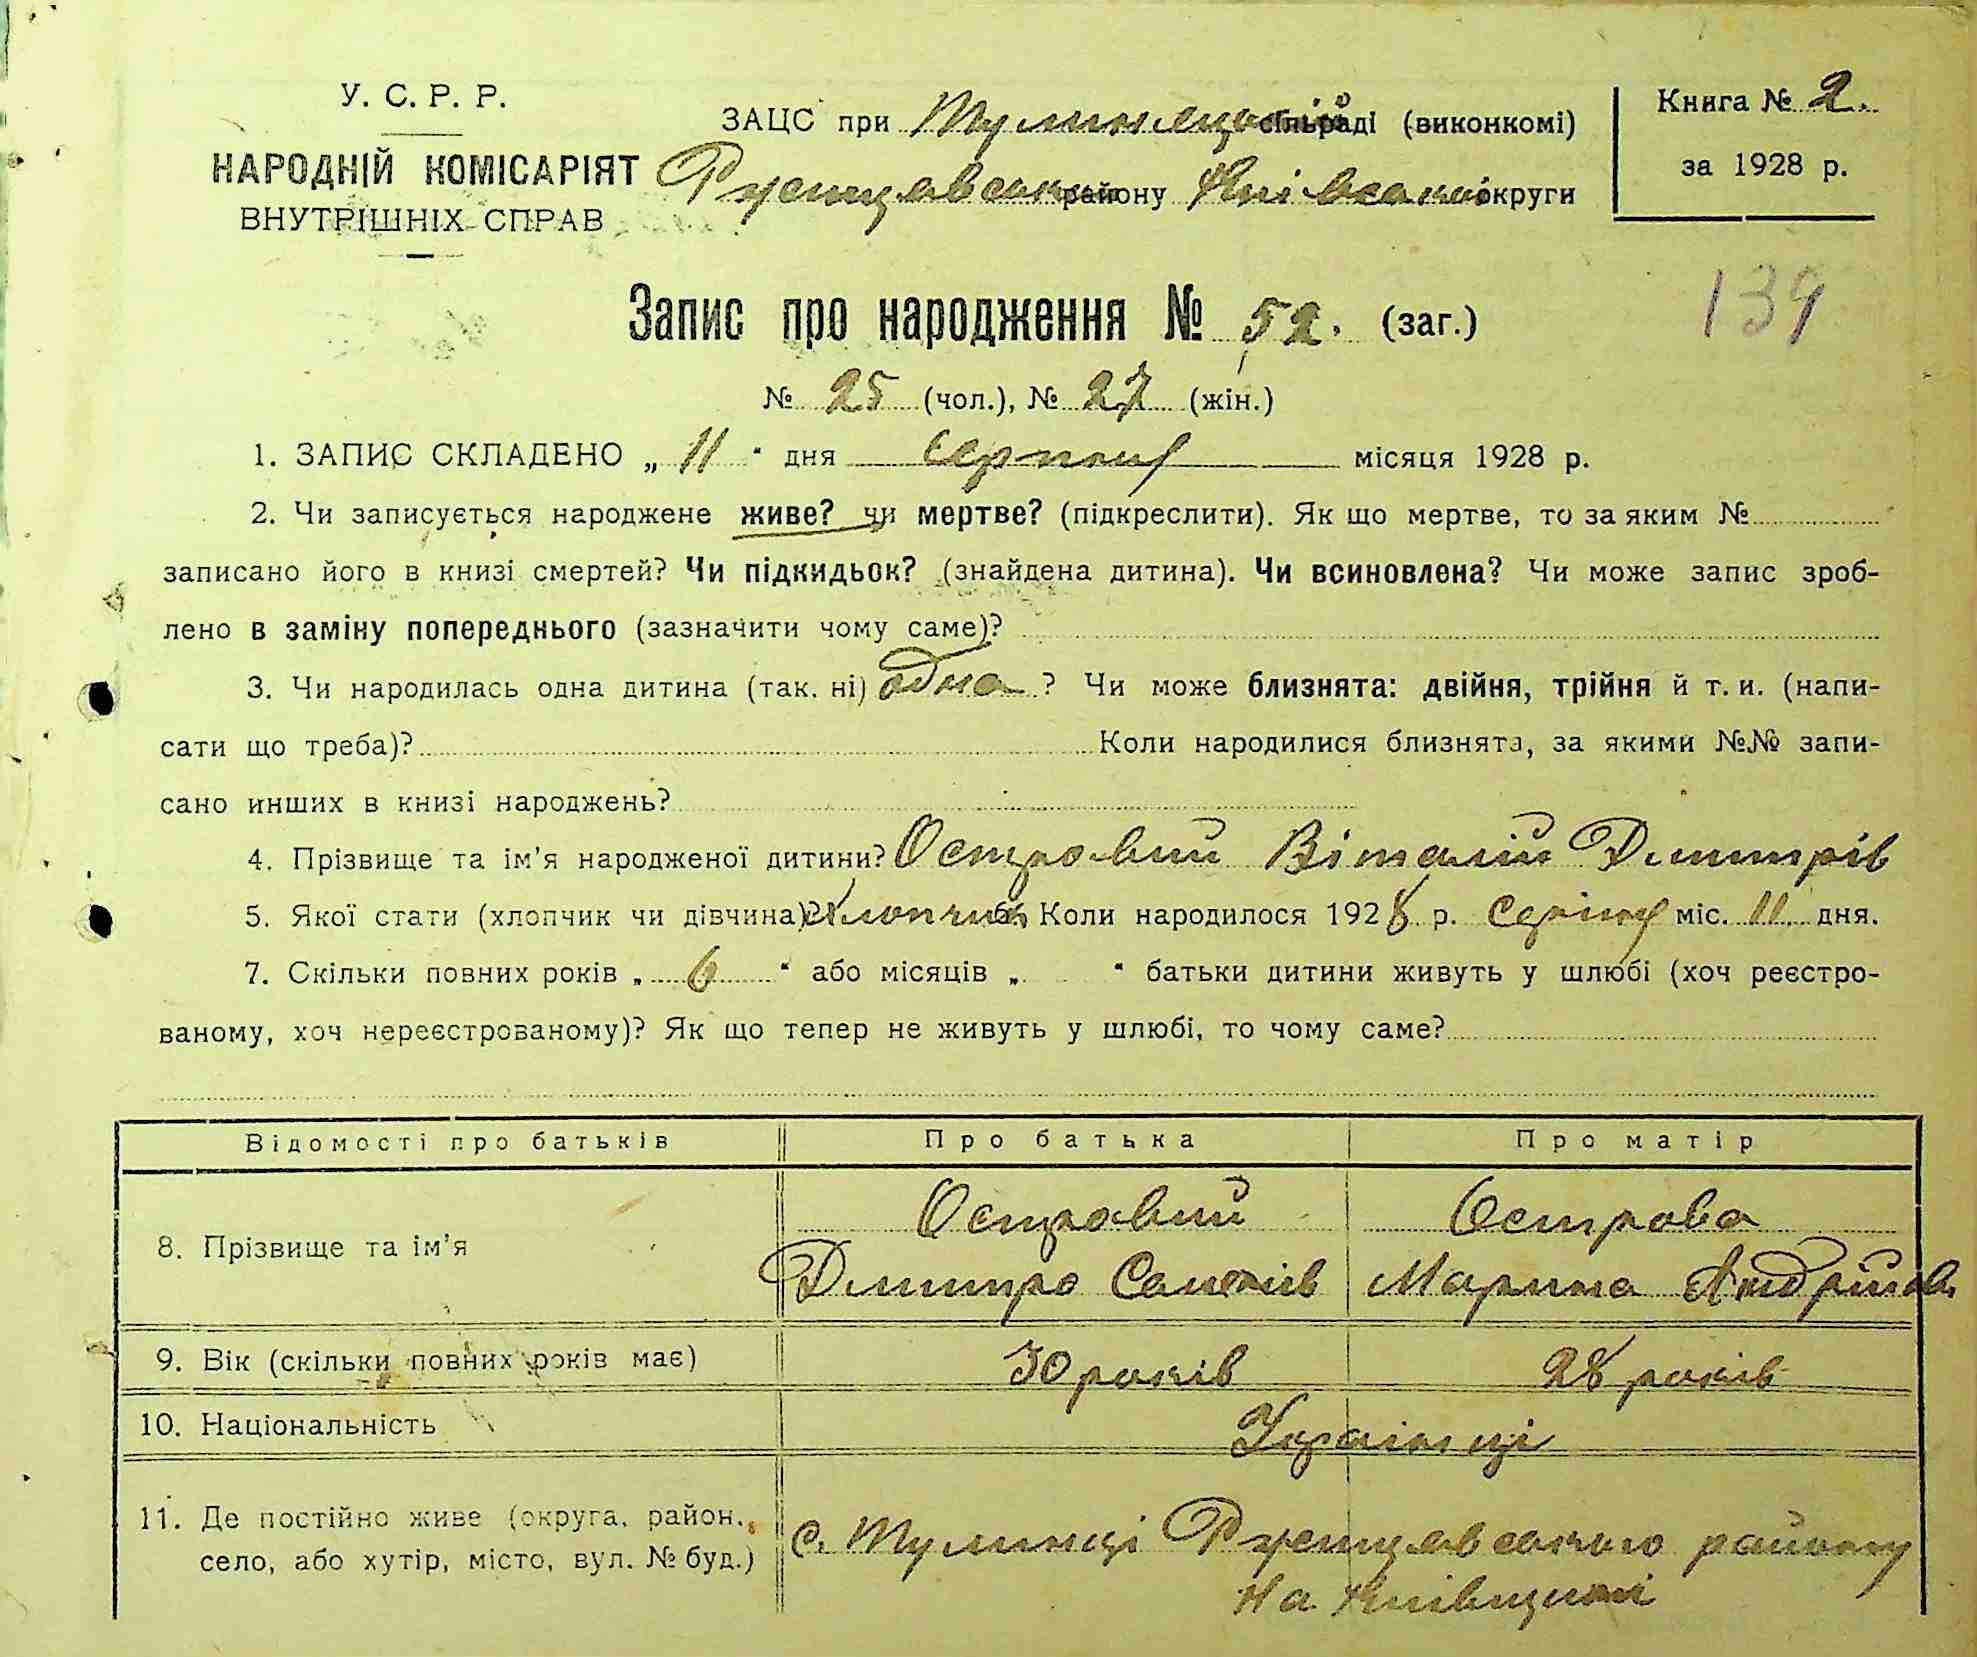 У. С. Р. Р.
НАРОДНІЙ КОМІСАРІЯТ
ВНУТРІШНІХ СПРАВ
ЗАЦС при Тулинецькій сільраді (виконкомі)
Ржищівського району Київської округи
Книга № 2.
за 1928 р.
139
Запис про народження № 52. (заг.)
№ 25 (чол.), № 27 (жін.)
1. ЗАПИС СКЛАДЕНО „ 11 “ дня серпня місяця 1928 р.
2. Чи записується народжене живе? чи мертве? (підкреслити). Як що мертве, то за яким №
записано його в книзі смертей? Чи підкидьок? (знайдена дитина). Чи всиновлена? Чи може запис зроб-
лено в заміну попереднього (зазначити чому саме)?
3. Чи народилась одна дитина (так. ні) одна ? Чи може близнята: двійня, трійня й т. и. (напи-
сати що треба)? Коли народилися близнята, за якими №№ запи-
сано инших в книзі народжень?
4. Прізвище та ім'я народженої дитини? Островий Віталій Дмитрів
5. Якої стати (хлопчик чи дівчина)? Хлопчик 6. Коли народилося 1928 р. Серпня міс. 11 дня.
7. Скільки повних років „ 6 “ або місяців „ “ батьки дитини живуть у шлюбі (хоч реєстро-
ваному, хоч нереєстрованому)? Як що тепер не живуть у шлюбі, то чому саме?
Відомості про батьків Про батька Про матір
8. Прізвище та ім'я
Островий Острова
Дмитро Марина Андріїва
9. Вік (скільки повних років має) 30 років 28 років
10. Національність Українці
11. Де постійно живе (округа, район,
село, або хутір, місто, вул. № буд.)
с. Тулинці Ржищівського району
на Київщині